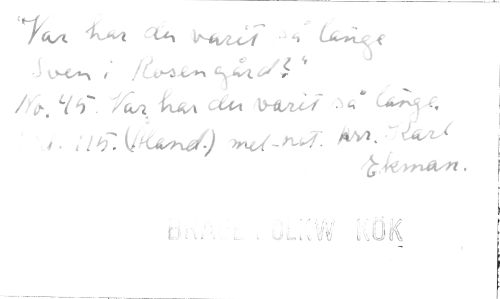 "Var har du varit så länge
Sven i Rosengård?"
No. 45. Var har du varit så länge.
115. (Åland.) mel-not. Arr. Karl
Ekman.